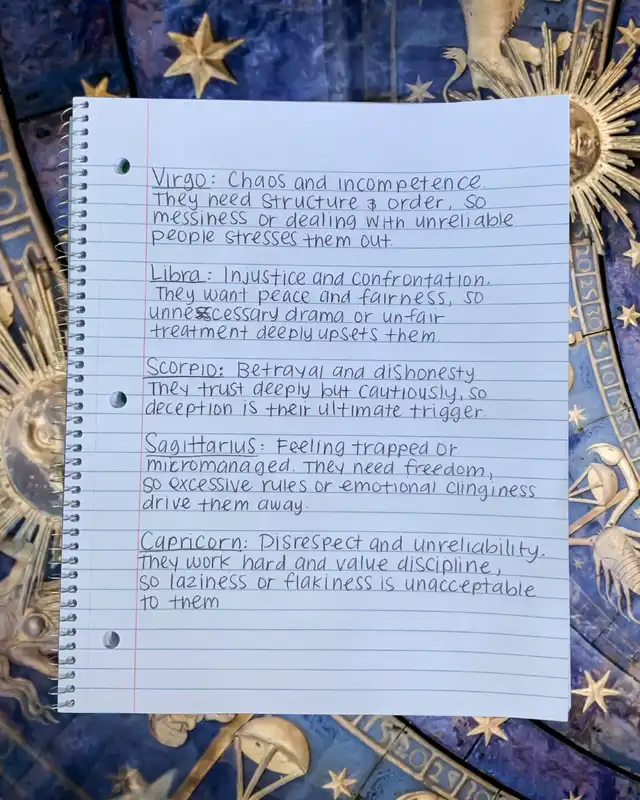 Virgo: Chaos and incompetence.
They need structure & order, so
messiness or dealing with unreliable
people stresses them out.
Libra: Injustice and confrontation.
They want peace and fairness, so
unnescessary drama or unfair
treatment deeply upsets them.
Scorpio: Betrayal and dishonesty
They trust deeply but cautiously, so
deception is their ultimate trigger.
Sagittarius: Feeling trapped or
micromanaged. They need freedom,
so excessive rules or emotional clinginess
drive them away.
Capricorn: Disrespect and unreliability.
They work hard and value discipline,
so laziness or flakiness is unacceptable
to them